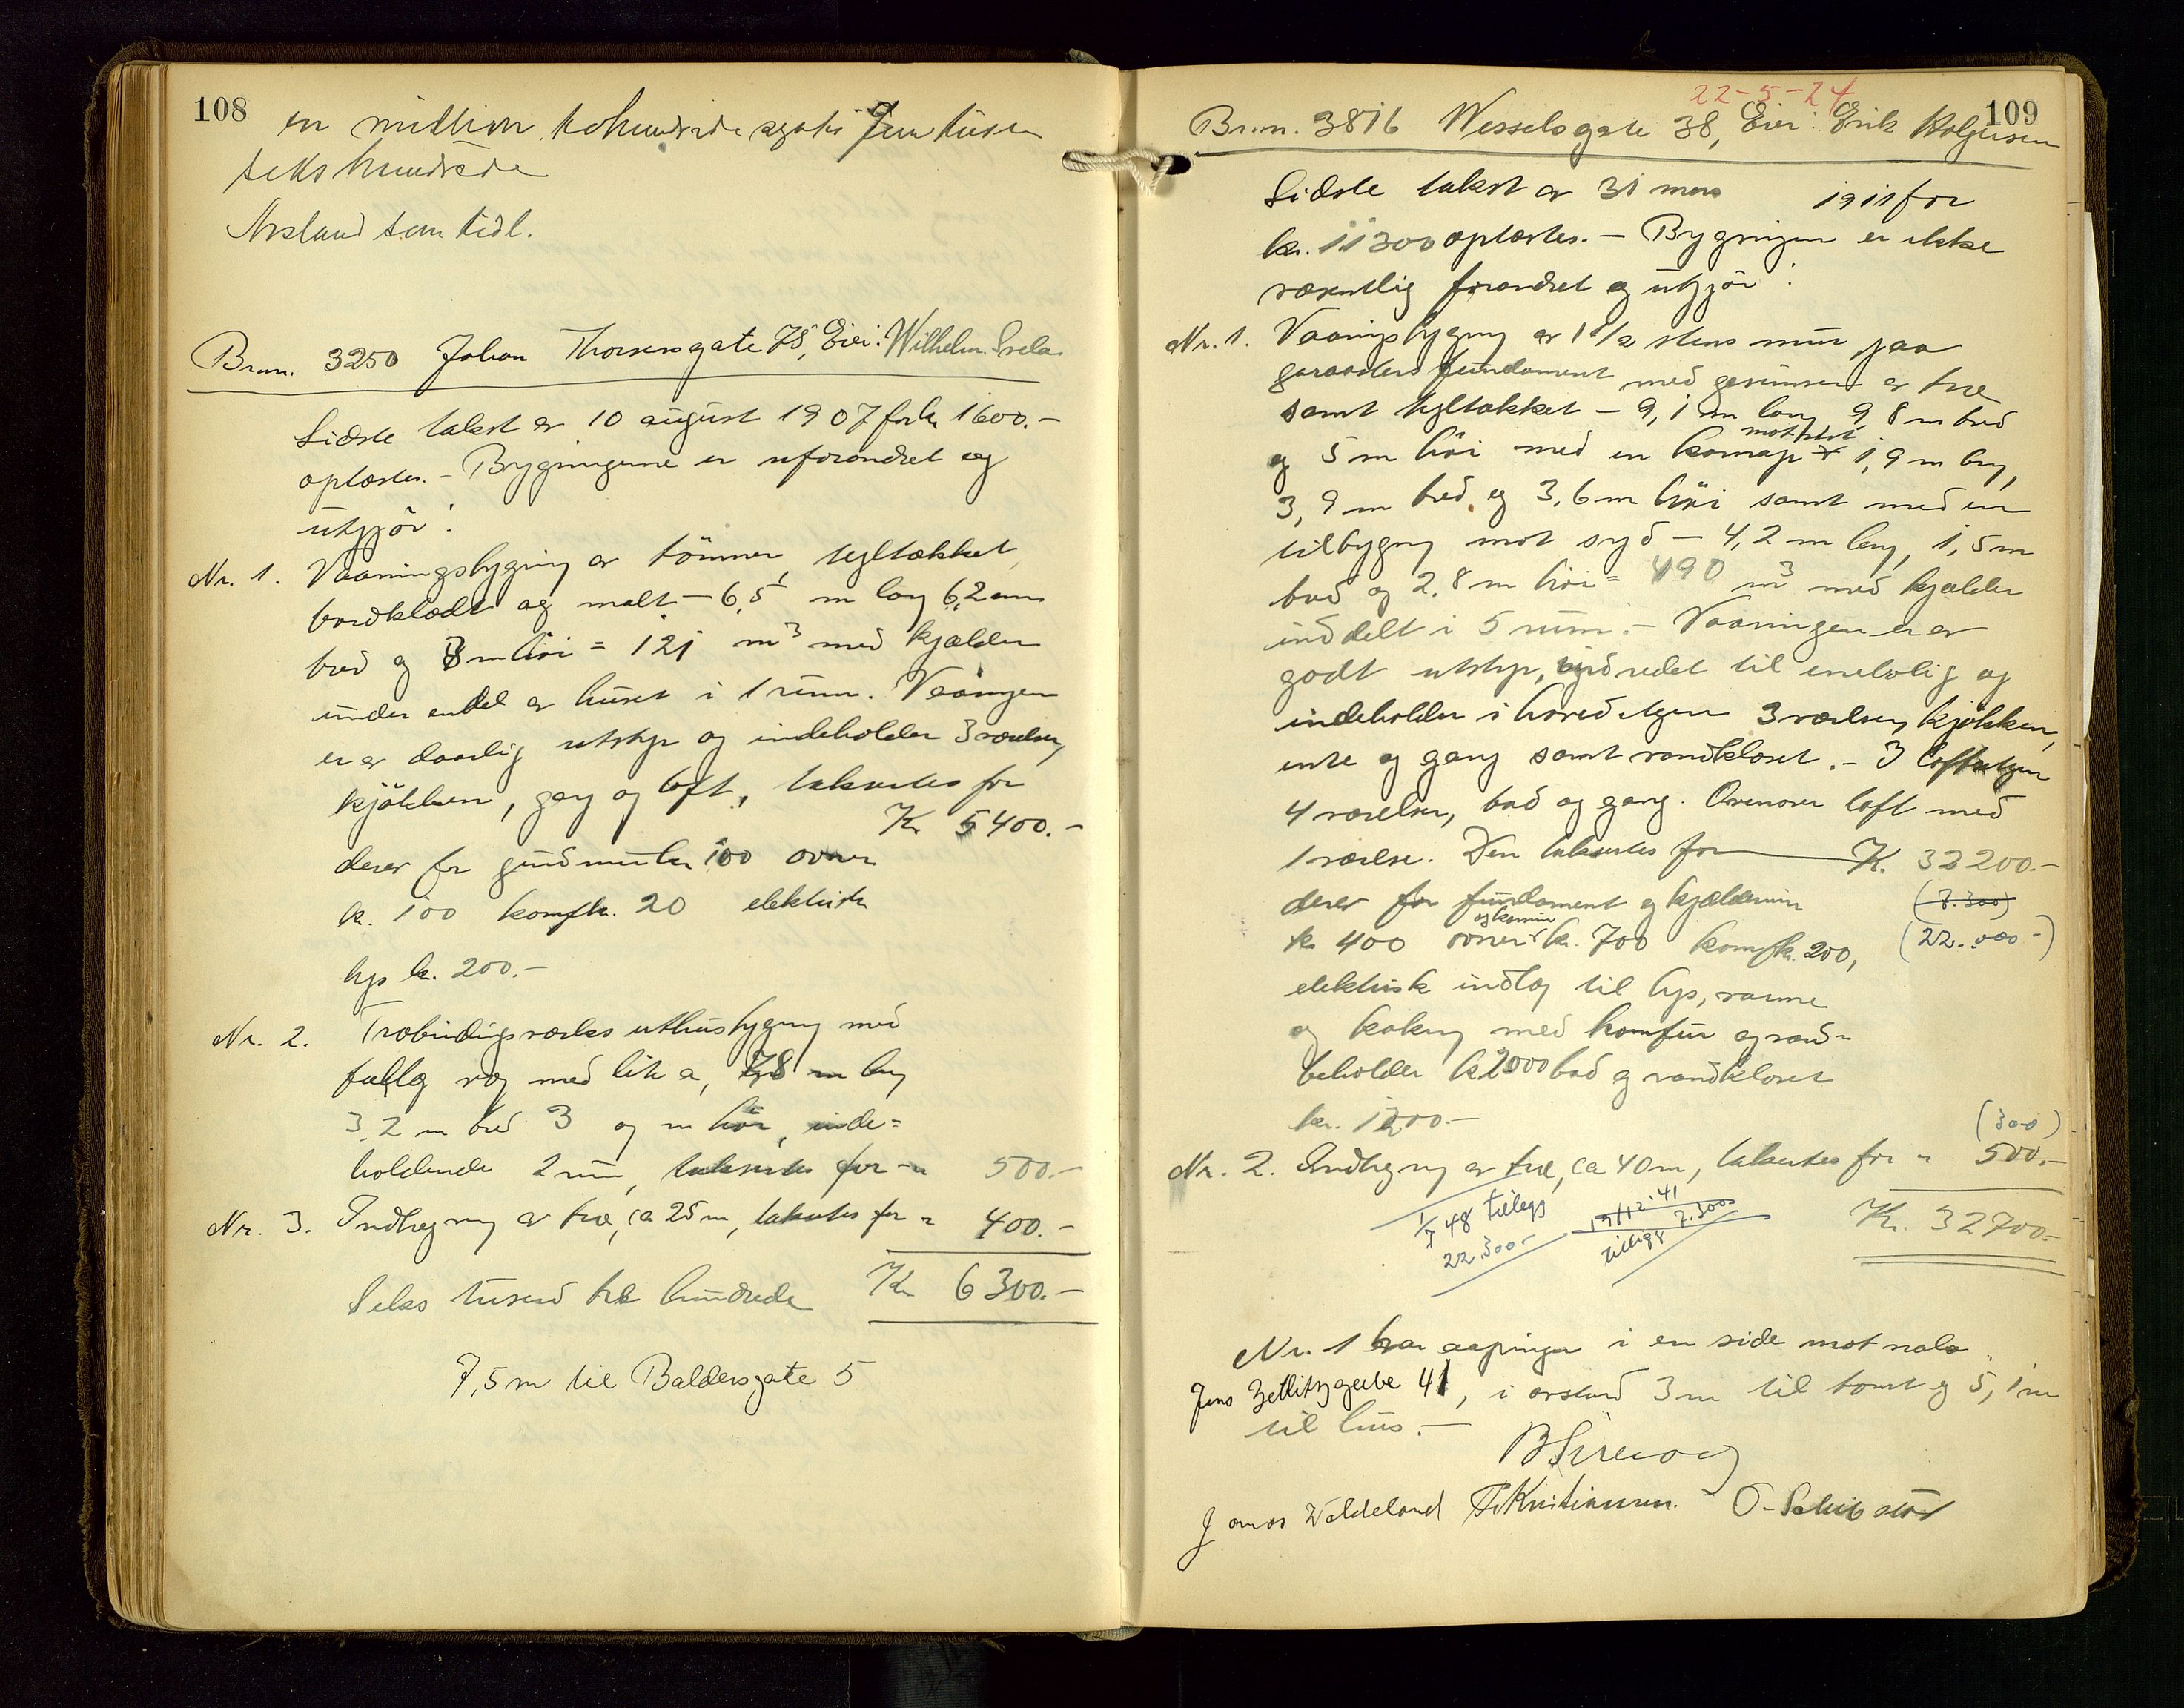 108
en million tohundrede og otti fem tusen
sekshundrede
Avstand som tidl.
Brnr. 3250 Johan Thorsensgate 78, Eier: Wilhelm Svela
Sidste takst av 10 august 1907 for kr 1600.-
oplæstes. - Bygningerne er uforandret og
utgjör:
Nr. 1. Vaaningsbygning av tömmer, tegltækket
bordklædt og malt - 6,5 m lang 6,2 m
bred og 3 m höi = 121 m3 med kjælder
under en del av huset i 1 rum. Vaaningen
er av daarlig utstyr og indeholder 3 værelser,
kjökken, gang og loft, taksertes for
Kr 5400.-
derav for grundmur kr 100 ovner
kr. 100 komf kr. 20 elektrisk
lys kr. 200.-
Nr. 2. Træbindingsverks uthusbygning med
fællg væg med lit a, 7,8 m lang
3,2 m bred 3 og m höi, inde=
holdende 2 rum, taksertes for " 500.-
Nr. 3. Indhegning av træ, ca 25 m, takseres for " 400.-
Seks tusend tre hundrede Kr 6300.-
7,5 m til Baldersgate 5
109
22-5-24
Brnr. 3816 Wesselsgate 38, Eier: Erik Holgersen
Sidste takst av 31 mars 1911 for
kr. 11300 oplæstes. - Bygningen er ikke
væsentlig forandret og utgjör:
Nr. 1. Vaaningsbygning av 1 1/2 stens mur paa
graastens fundament med gesimser av træ
samt tegltækket - 9,1 m lang 9,8 m bred
mot vest
og 5 m höi med en karnap 1,9 m lang,
3,9 m bred og 3,6 m höi samt med en
tilbygning mot syd - 4,2 m lang, 1,5 m
bred og 2,8 m höi = 490 m3 med kjælder
inddelt i 5 rum. - Vaaningen er av
godt utstyr, indredet til enebolig og
indeholder i hovedetagen 3 værelser, kjökken,
entre og gang samt vandkloset. - I loftsetagen
4 værelser, bad og gang. Ovenover loft med
1 værelse. Den taksertes for Kr. 32200.-
derav for fundament og kjældermur (7.300)
og kamin
kr 400 ovner kr. 700 komf kr. 200, (22.000-)
elektrisk indlæg til lys, varme
og kokning med komfur og vand=
beholder kr 2000 bad og vandkloset
kr. 1200.-
(300)
Nr. 2. Indhegning av træ, ca 40 m, taksertes for " 500.-
1/7 48 tillegg 19/12-41
22.300- tillegg 7.300
Kr. 32700.-
Nr. 1 har aapninger i en side mot nabo
Jens Zetlitzgate 41, i avstand 3 m til tomt og 5,1 m
til hus. -
Jonas Waldeland F. Kristiansen. O. Schibsted